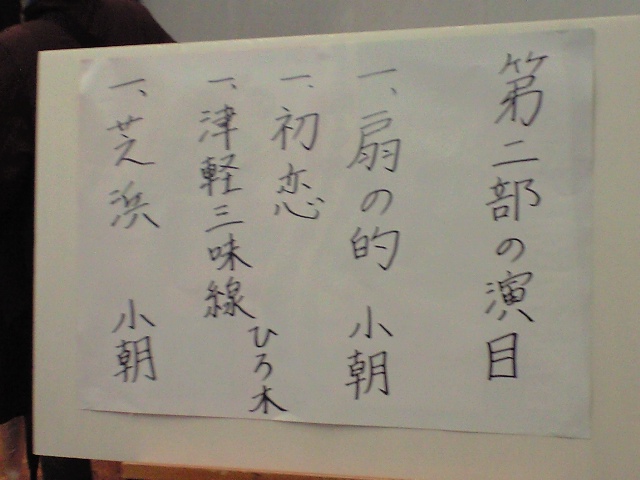 第二部の演目
一、扇の的 小朝
一、初恋
一、津軽三味線 ひろ木
一、芝浜 小朝